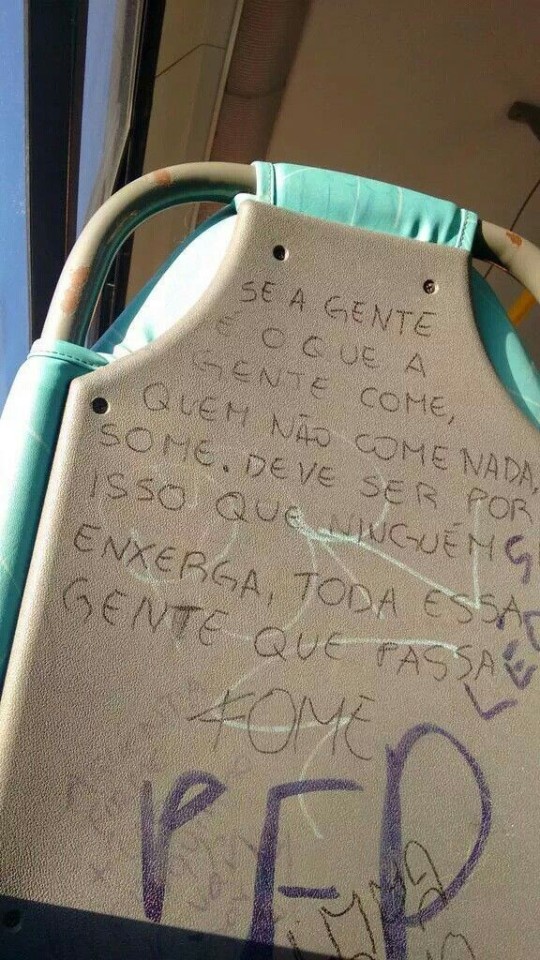 SE A GENTE
É O QUE A
GENTE COME,
QUEM NÃO COME NADA,
SOME. DEVE SER POR
ISSO QUE NINGUÉM
ENXERGA, TODA ESSA
GENTE QUE PASSA
FOME
PEP